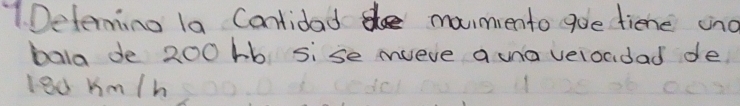 1. Defermino la Cantidad de movimiento que tiene una
bala de 200 hb si se mueve a una velocidad de
180 Km/h